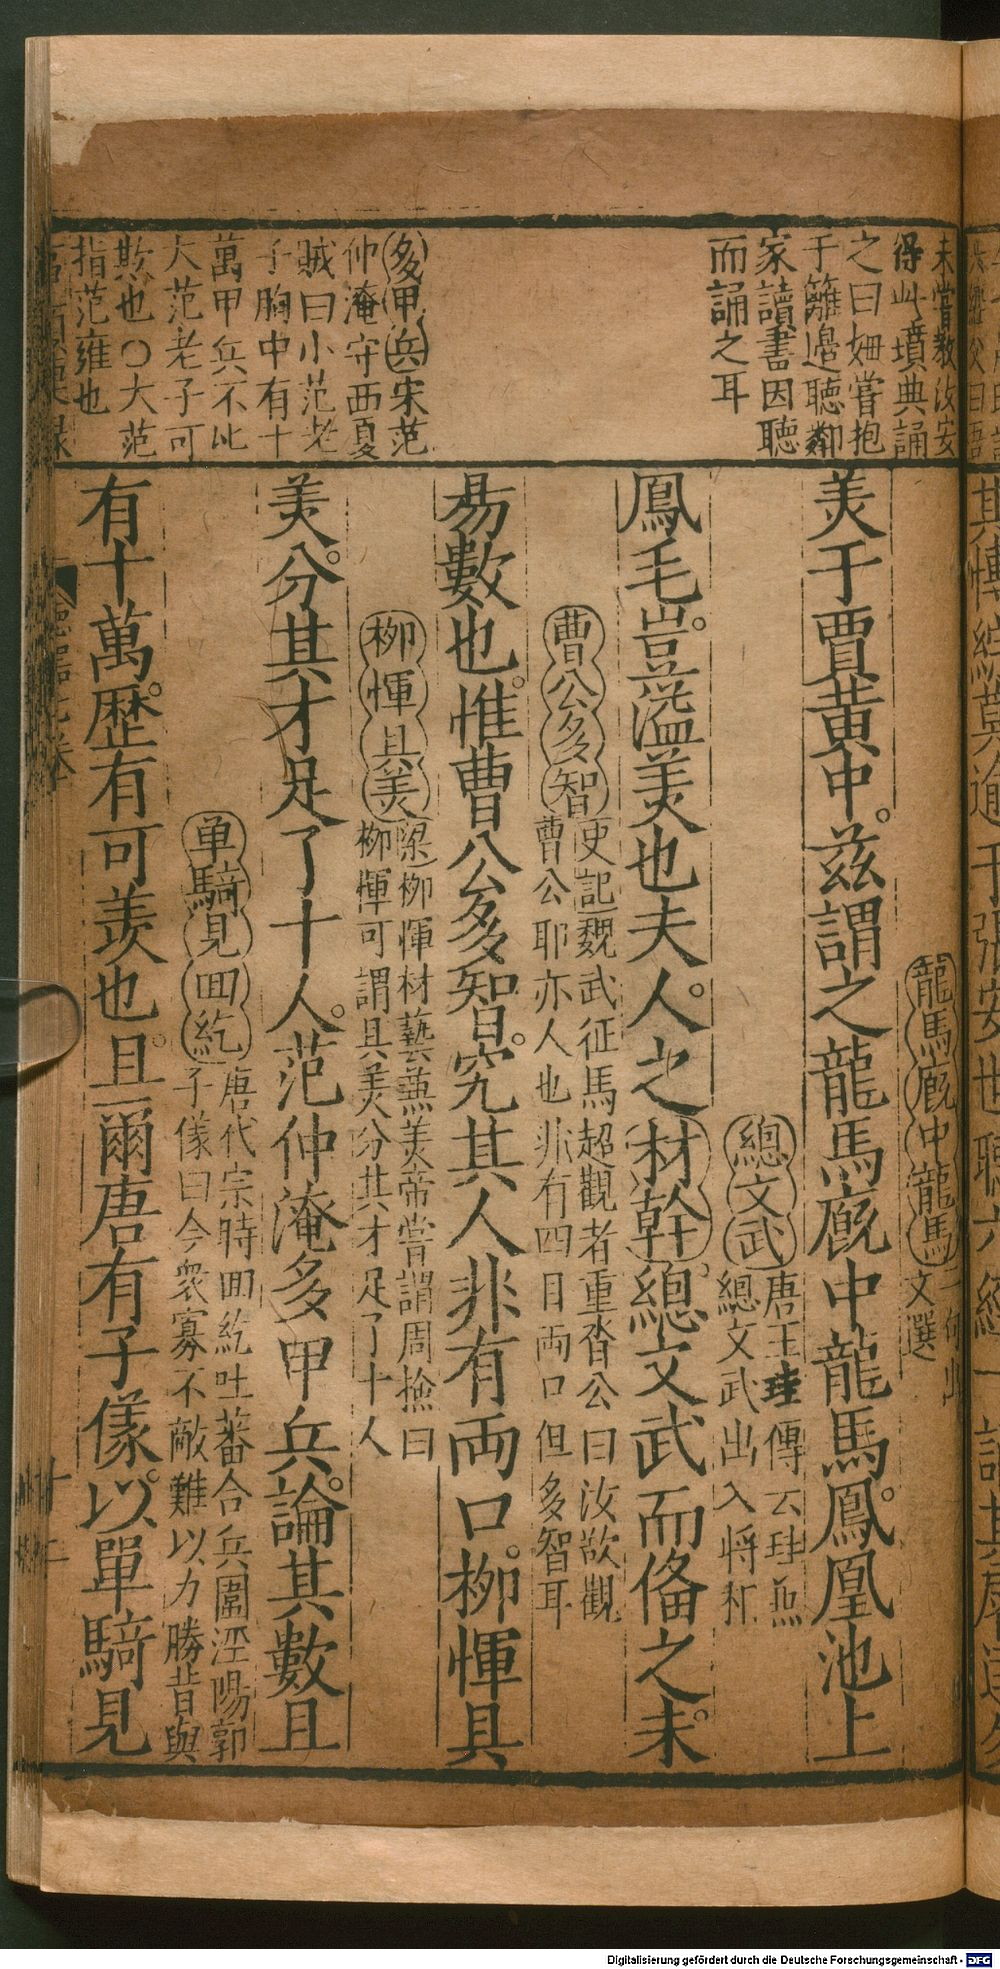 未嘗教汝安
得此墳典誦
之曰姍嘗抱
于籬邉聴鄰
家讀書因聴
而誦之耳
多甲兵宋范
仲淹守西夏
賊曰小范老
子胸中有十
萬甲兵不比
大范老子可
欺也〇大范
指范雍也
龍馬廐中龍馬
文選
羙于賈黄中。兹謂之龍馬廐中龍馬。鳳凰池上
總文武
唐王珪傳云珪兼
總文武出入将相
鳳毛。豈溢羙也夫人。之材幹。總文武而俻之。未
曹公多智
史記魏武征馬超觀者重沓公曰汝欲觀
曹公耶亦人也非有四目両口但多智耳
易數也。惟曹公多智。究其人非有両口。栁惲具
栁惲具羙
梁栁惲材藝兼羙帝嘗謂周捨曰
栁惲可謂具羙分其才足了十人
羙。分其才足了十人。范仲淹多甲兵。論其數且
单騎見囬紇
唐代宗時囬紇吐蕃合兵圍涇陽郭
子儀曰今衆寡不敵難以力勝昔與
有十萬。歴有可羨也。且爾唐有子儀。以單騎見
十二
Digitalisierung gefördert durch die Deutsche Forschungsgemeinschaft - DFG